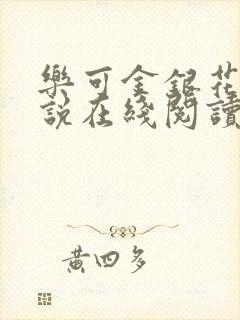 樂可金銀花
說在綫閱讀
黃四多